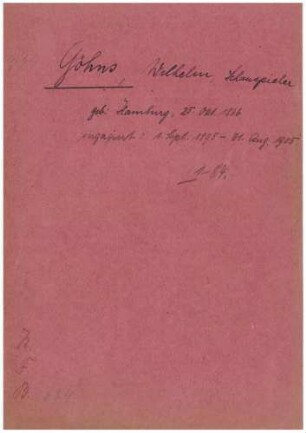 Göhns, Wilhelm, Schauspieler
geb. Hamburg, 25. Okt. 18
engagiert: 1. Sept. 1895 - 31. Aug. 1905
1-64.
F.
B.